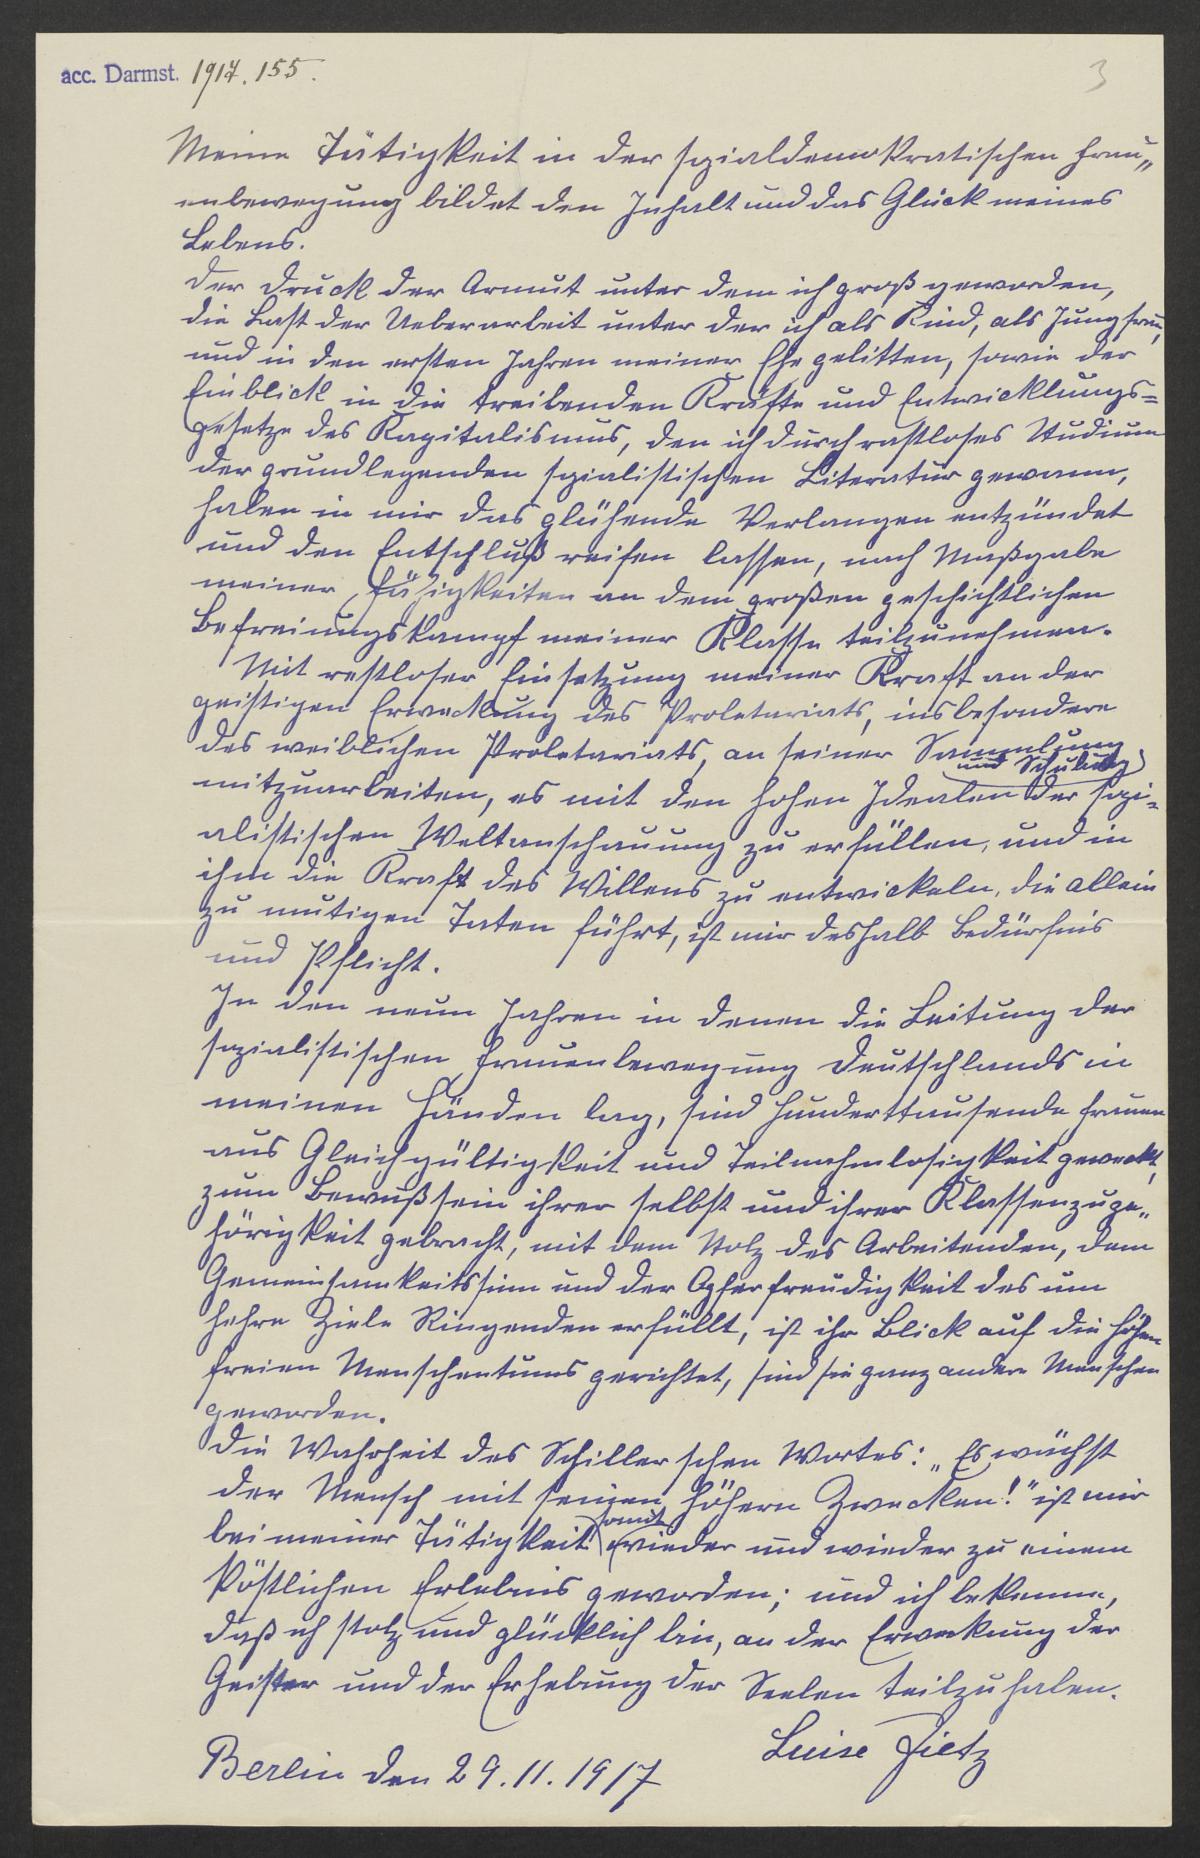 acc. Darmst. 1917.155.
3
Meine Tätigkeit in der sozialdemokratischen Frau„
enbewegung bildet den Inhalt und das Glück meines
Lebens.
Der Druck der Armut unter dem ich groß geworden,
die Last der Ueberarbeit unter der ich als Kind, als Jungfrau,
und in den ersten Jahren meiner Ehe gelitten, sowie der
Einblick in die treibenden Kräfte und Entwicklungs=
gesetze des Kapitalismus, den ich durch rastloses Studium
der grundlegenden sozialistischen Literatur gewann,
haben in mir das glühende Verlangen entzündet
und den Entschluß reifen lassen, nach Maßgabe
meiner Fähigkeiten an dem großen geschichtlichen
Befreiungskampf meiner Klasse teilzunehmen.
Mit restloser Einsetzung meiner Kraft an der
geistigen Erweckung des Proletariats, insbesondere
des weiblichen Proletariats, an seiner Sammlung
und Schulung
mitzuarbeiten, es mit den hohen Idealen der sozi=
alistischen Weltanschauung zu erfüllen, und in
ihm die Kraft des Willens zu entwickeln, die allein
zu mutigen Taten führt, ist mir deshalb Bedürfnis
und Pflicht.
In den neun Jahren in denen die Leitung der
sozialistischen Frauenbewegung Deutschlands in
meinen Händen lag, sind Hunderttausende Frauen
aus Gleichgültigkeit und Teilnahmlosigkeit geweckt,
zum Bewußtsein ihrer selbst und ihrer Klassenzuge„
hörigkeit gebracht, mit dem Stolz des Arbeitenden, dem
Gemeinsamkeitssinn und der Opferfreudigkeit des um
hehre Ziele Ringenden erfüllt, ist ihr Blick auf die Höhen
freien Menschentums gerichtet, sind sie ganz andere Menschen
geworden.
Die Wahrheit des Schillerschen Wortes: „Es wächst
der Mensch mit seinen höhern Zwecken!" ist mir
somit
bei meiner Tätigkeit wieder und wieder zu einem
köstlichen Erlebnis geworden; und ich bekenne,
daß ich stolz und glücklich bin, an der Erweckung der
Geister und der Erhebung der Seelen teilzuhaben.
Luise Zietz
Berlin den 29.11.1917